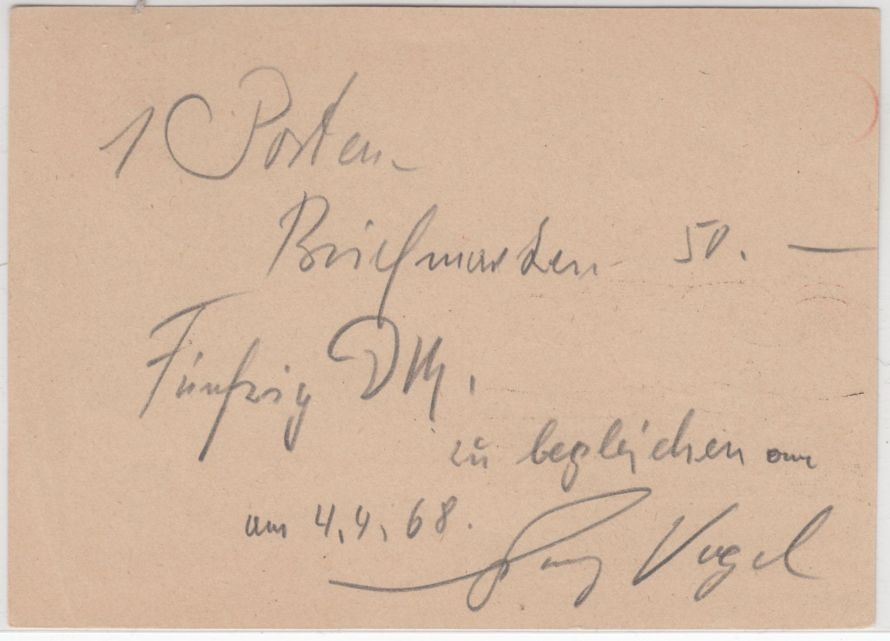 1 Posten
Briefmarken 50. —
Fünfzig DM.
zu begleichen am
am 4.4.68.
Vogel